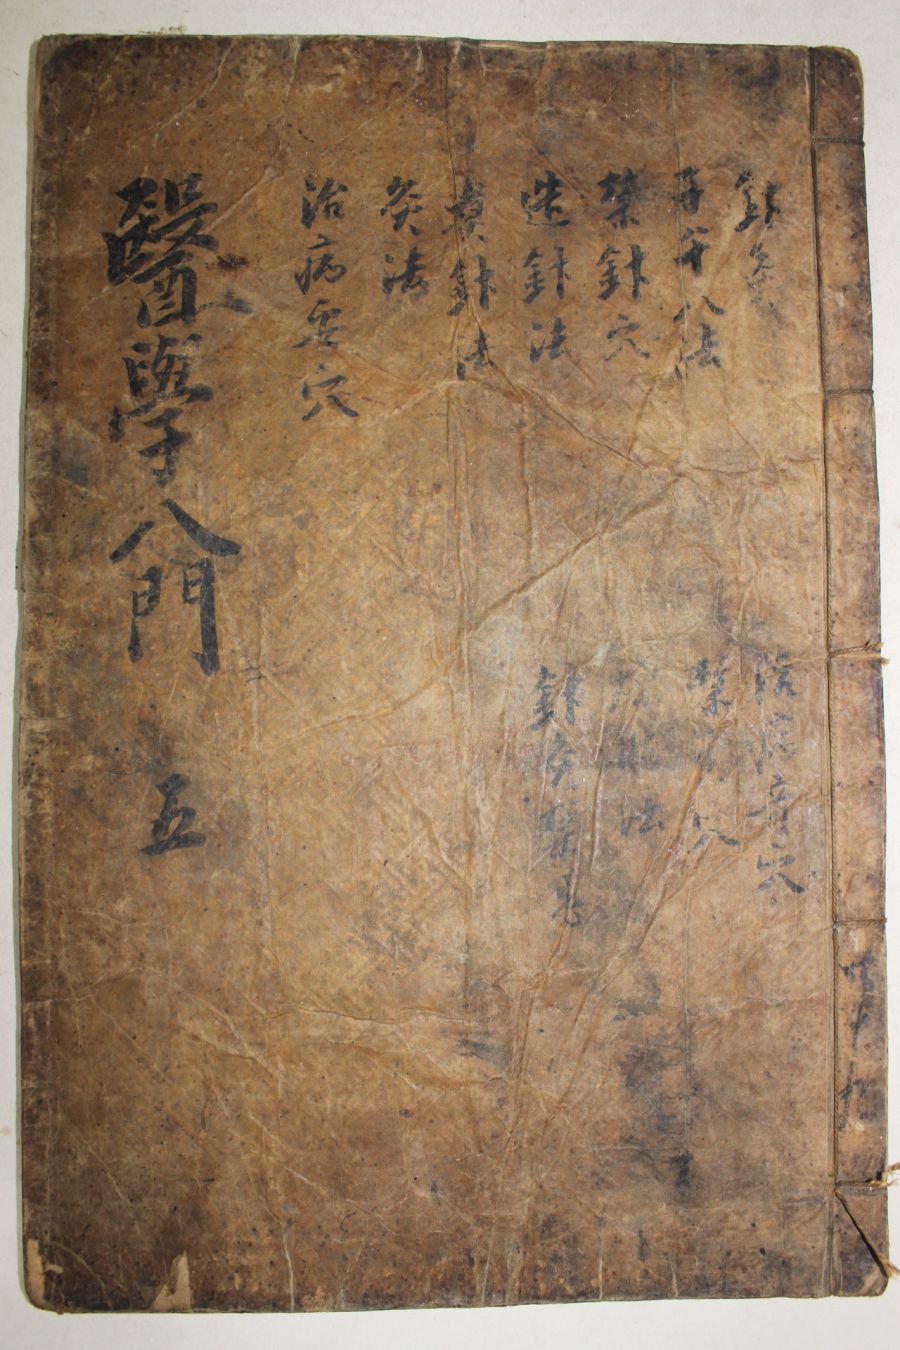 針灸
子午八法
禁針穴
造針法
煮針法
灸法
治病要穴
治病奇穴
禁 穴
法
針灸禁忌
醫學入門 五
共十九